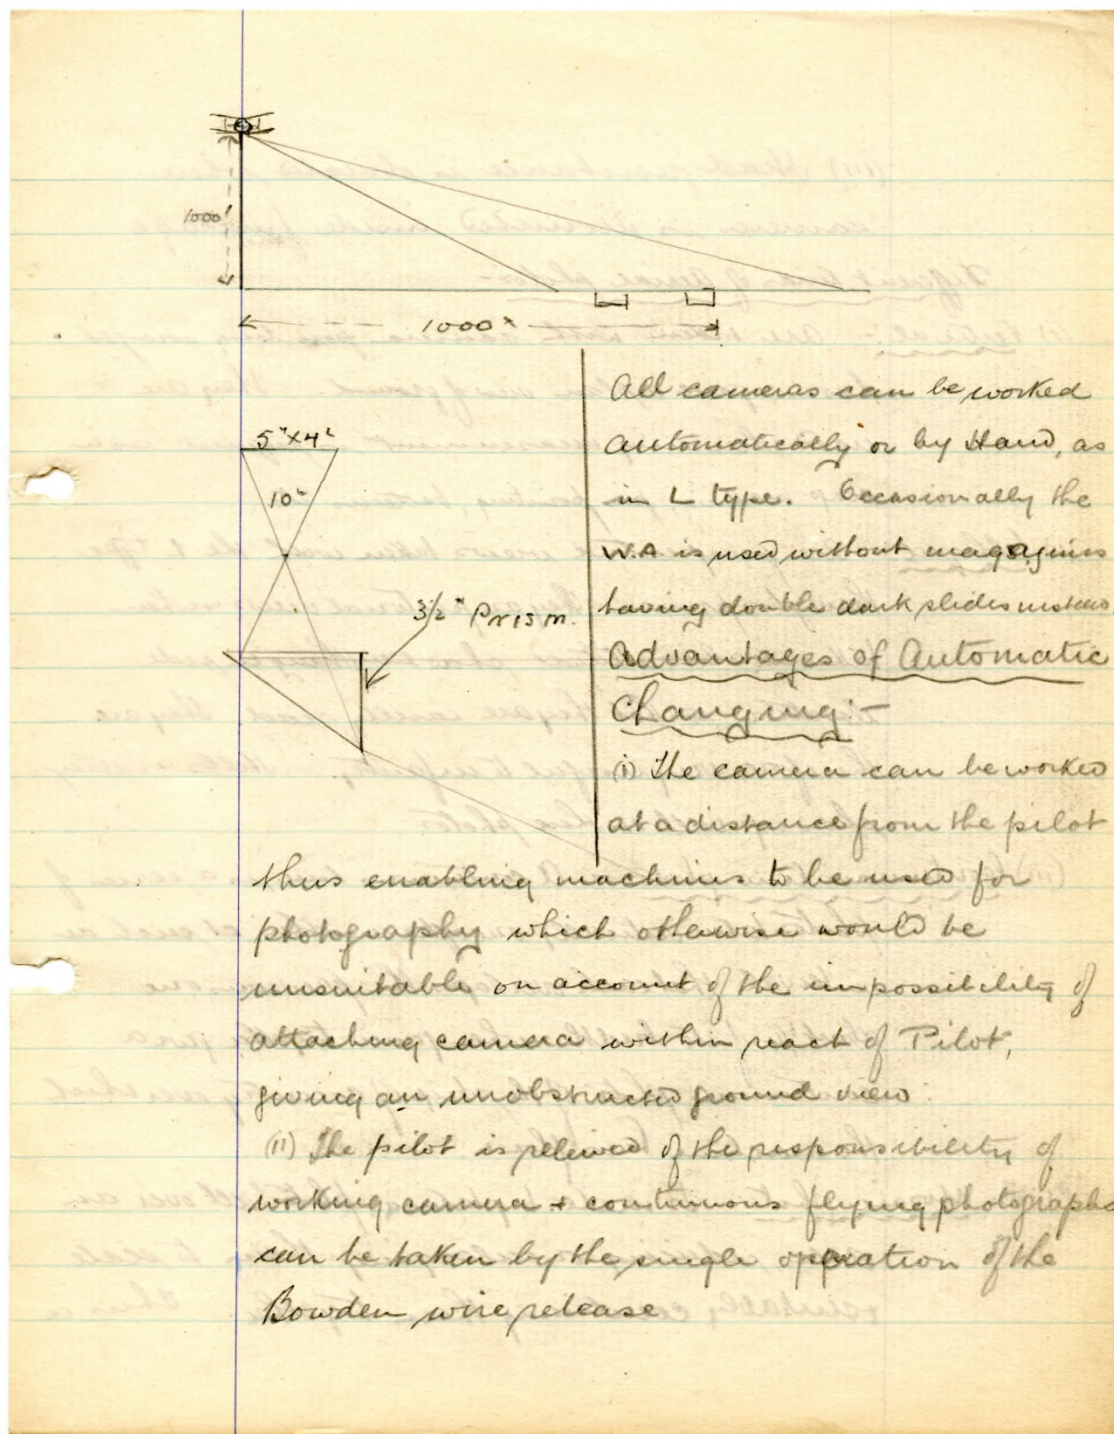 1000'
1000ˣ
5"x4"
10"
3½" Prism.
All cameras can be worked
automatically or by Hand, as
in L type. Occasionally the
W.A is used without magazines
having double dark slides instead.
Advantages of Automatic
Changing:-
(i) The camera can be worked
at a distance from the pilot
thus enabling machines to be used for
photography which otherwise would be
unsuitable on account of the impossibility of
attaching camera within reach of Pilot,
giving an unobstructed ground view.
(ii) The pilot is relieved of the responsibility of
working camera + continuous flying photographs
can be taken by the single operation of the
Bowden wire release